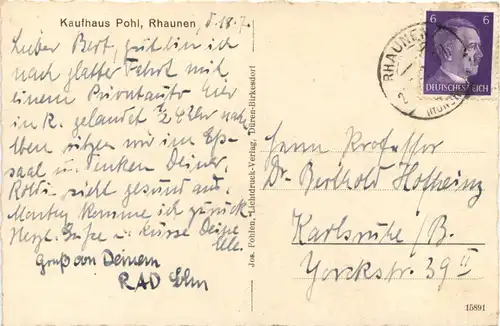 Kaufhaus Pohl, Rhaunen, d. 18.7.
Lieber Bert, gut bin ich
nach glatter Fahrt mit
einem Privatauto hier
in R. gelandet ½ 2 Uhr nach
Eben sitzen wir im Eß-
saal u. denken Deiner.
Roldi sieht gesund aus.
Montag komme ich zurück.
Herzl. Grüße u. Küsse Deine
Elle.
Gruß von Deinem
RAD
Jos. Pohlen, Lichtdruck-Verlag, Düren-Birkesdorf
6 6
DEUTSCHES REICH
RHAUNEN
Herrn Professor
Dr. Berthold Hofheinz
Karlsruhe/B.
Yorckstr. 39 II
15891